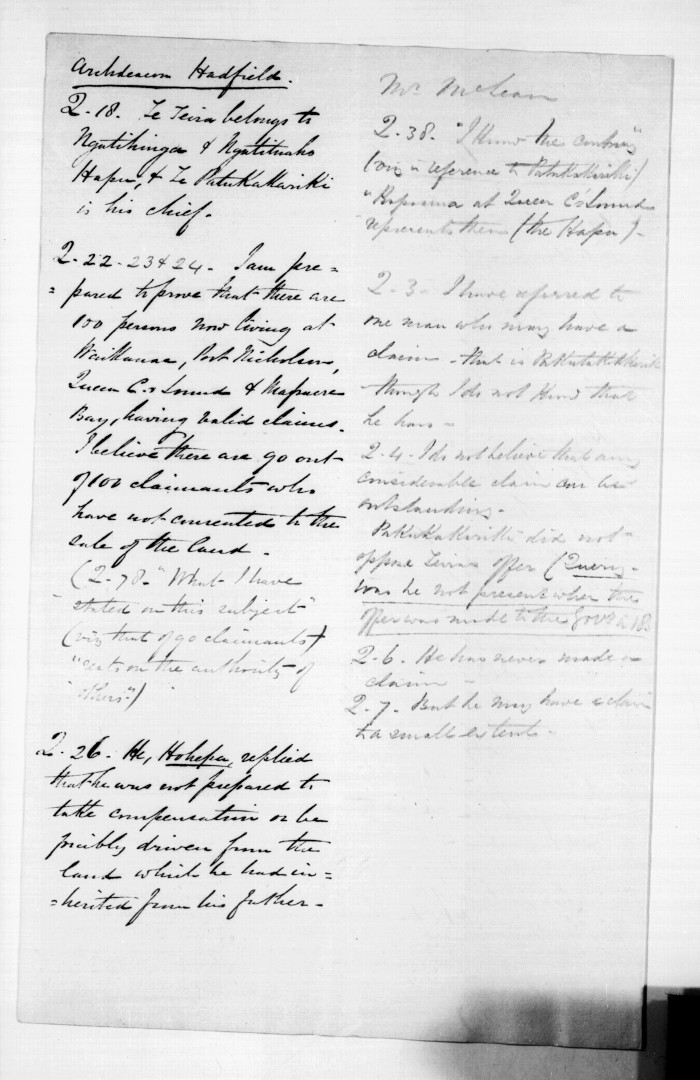 Archdeacon Hadfield.
Q-18. Te Teira belongs to
Ngatihinga & Ngatituaho
Hapu, & Te Patukakariki
is his chief.
Q-22-23 & 24. I am pre=
=pared to prove that there are
100 persons now living at
Waikanae, Port Nicholson,
Queen C.s Sound & Massacre
Bay, having valid claims.
I believe there are 90 out
of 100 claimants who
have not consented to the
sale of the land.
(Q-78. "What I have
stated on this subject"
(viz that of 90 claimants)
"rests on the authority of
others")
Q-26. He, Hohepa, replied
that he was not prepared to
take compensation or be
forcibly driven from the
land which he had in=
=herited from his father-
Mr. McLean
Q-38. "I know the contrary"
(viz in reference to Patukakariki)
"Ropoama at Queen C.s Sound
represents them (the Hapu)-
Q-3- I have referred to
one man who may have a
claim - that is Patukakariki
- though I do not know that
he has-
Q-4. I do not believe that any
considerable claim can be
outstanding.
Patukakariki did not
oppose Teira's offer (Query-
was he not present when the
offer was made to the Govr in 185
Q-6. He has never made a
claim -
Q-7. But he may have a claim
to a small extent.